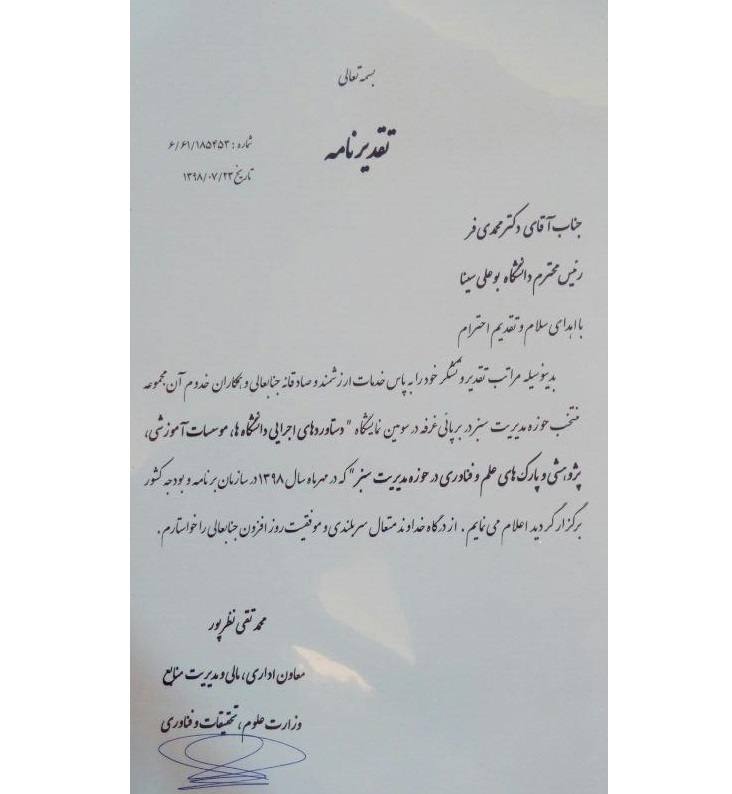 بسمه تعالی
تقدیرنامه
شماره : ۶/۶۱/۱۸۵۴۵۳
تاریخ ۱۳۹۸/۰۷/۲۳
جناب آقای دکتر محمدی فر
رئیس محترم دانشگاه بوعلی سینا
با اهدای سلام و تقدیم احترام
بدینوسیله مراتب تقدیر و تشکر خود را به پاس خدمات ارزشمند و صادقانه جنابعالی و همکاران خدوم آن مجموعه
منتخب حوزه مدیریت سبز در برپائی غرفه در سومین نمایشگاه "دستاوردهای اجرایی دانشگاه ها، موسسات آموزشی،
پژوهشی و پارک های علم و فناوری در حوزه مدیریت سبز" که در مهرماه سال ۱۳۹۸ در سازمان برنامه و بودجه کشور
برگزار گردید اعلام می نمایم . از درگاه خداوند متعال سربلندی و موفقیت روزافزون جنابعالی را خواستارم.
محمد تقی نظرپور
معاون اداری، مالی و مدیریت منابع
وزارت علوم، تحقیقات و فناوری